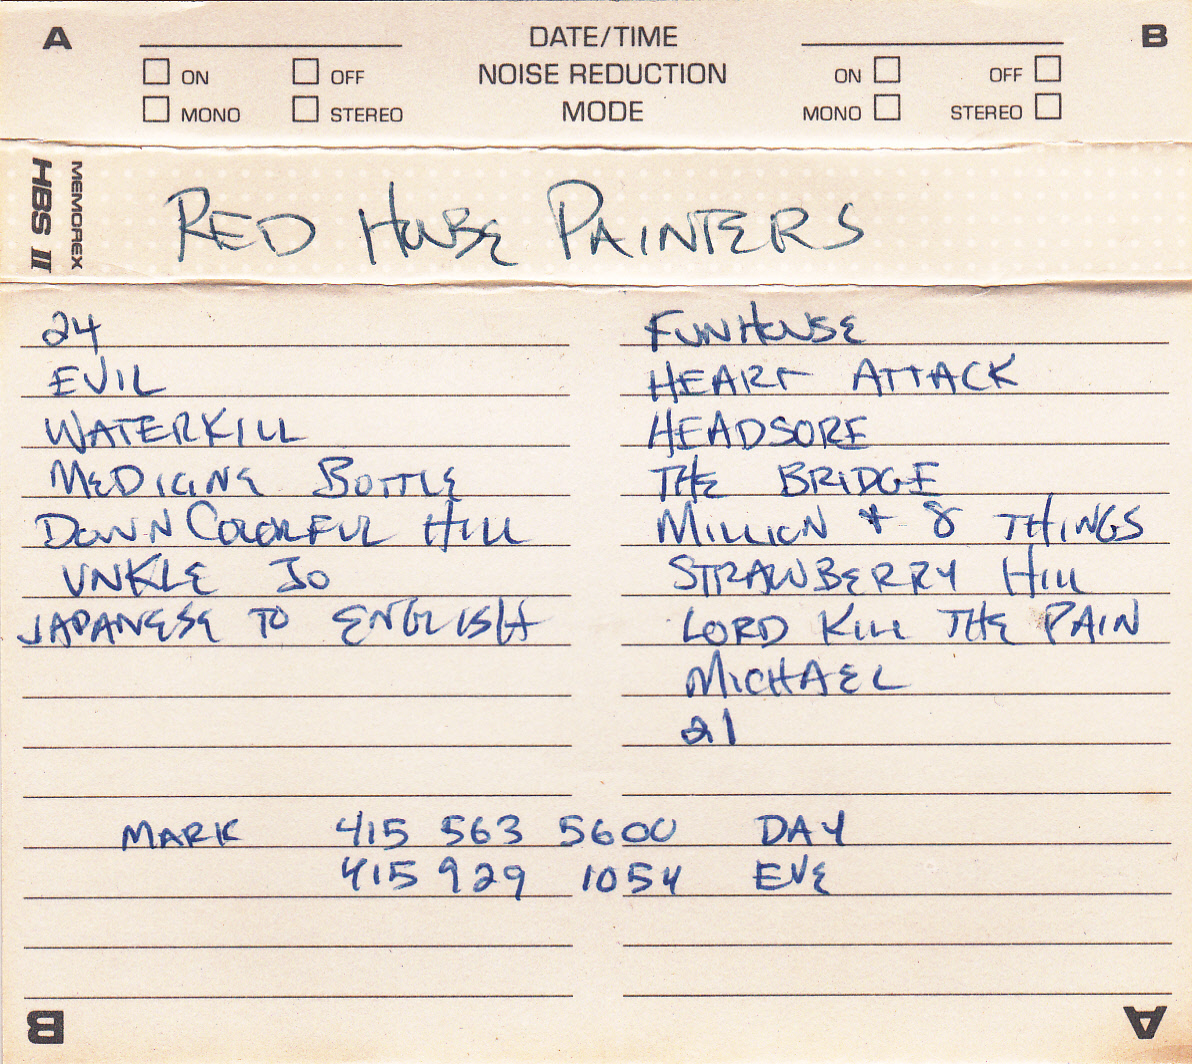 A DATE/TIME B
ON OFF NOISE REDUCTION ON OFF
MONO STEREO MODE MONO STEREO
MEMOREX
HBS II
RED HOUSE PAINTERS
24
EVIL
WATERKILL
MEDICINE BOTTLE
DOWN COLORFUL HILL
UNKLE JO
JAPANESE TO ENGLISH
FUNHOUSE
HEART ATTACK
HEADSORE
THE BRIDGE
MILLION + 8 THINGS
STRAWBERRY HILL
LORD KILL THE PAIN
MICHAEL
21
MARK 415 563 5600 DAY
415 929 1054 EVE
B A